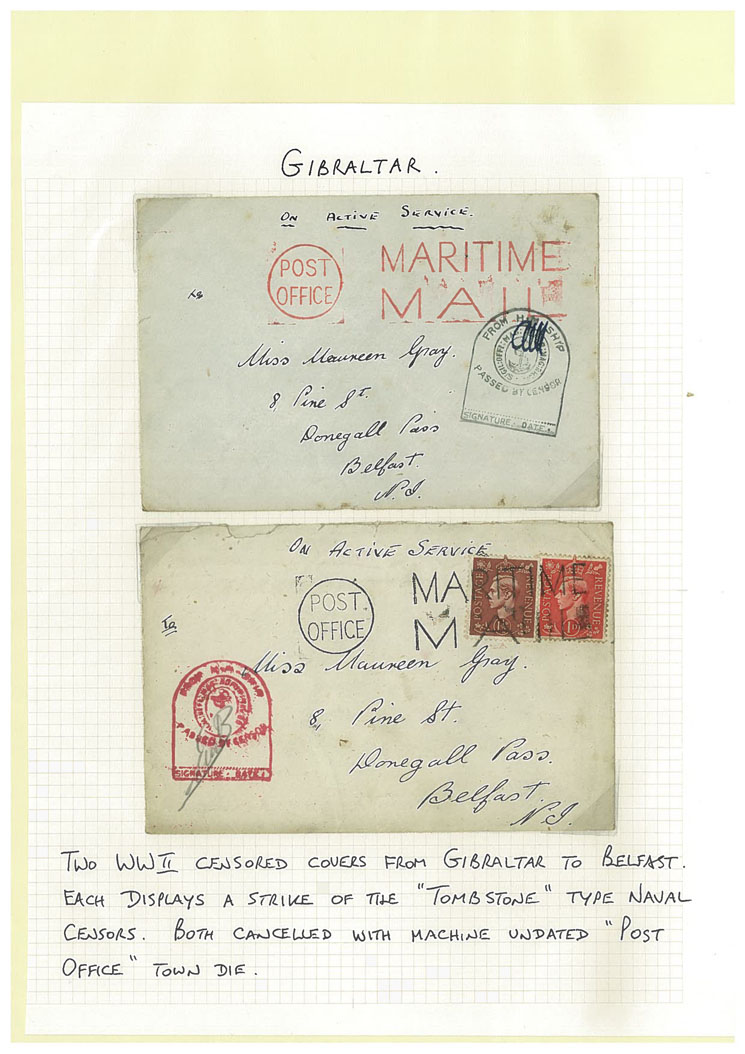 GIBRALTAR.
ON ACTIVE SERVICE.
POST OFFICE
MARITIME
MAIL
To
FROM H.M. SHIP
PASSED BY CENSOR
SIGNATURE. DATE.
Miss Maureen Gray.
8, Pine St.
Donegall Pass
Belfast.
N.I.
ON ACTIVE SERVICE
POST OFFICE
MARITIME
MAIL
POSTAGE REVENUE
POSTAGE REVENUE
To
Miss Maureen Gray.
PASSED BY CENSOR
SIGNATURE. DATE.
8, Pine St.
Donegall Pass.
Belfast.
N.I.
TWO WWII CENSORED COVERS FROM GIBRALTAR TO BELFAST.
EACH DISPLAYS A STRIKE OF THE "TOMBSTONE" TYPE NAVAL
CENSORS. BOTH CANCELLED WITH MACHINE UNDATED "POST
OFFICE" TOWN DIE.